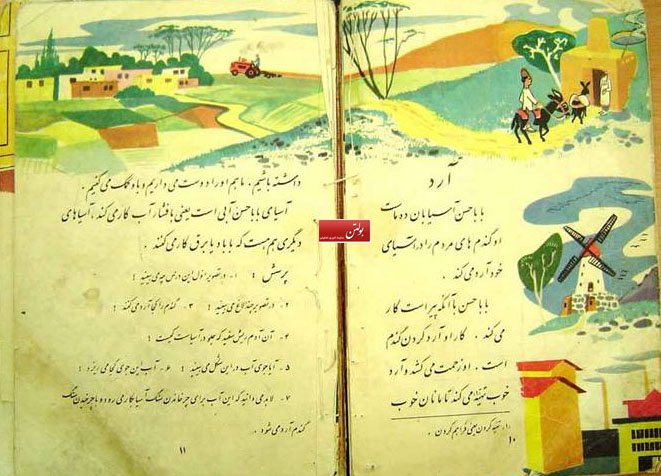 آرد
بابا حسن آسیابان ده ماست
او گندم های مردم را در آسیای
خود آرد می کند .
بابا حسن با آنکه پیر است کار
می کند . کار او آرد کردن گندم
است . او زحمت می کشد و آرد
خوب تهیّه می کند تا ما نان خوب
۱ـ تهیّه کردن یعنی فراهم کردن .
۱۰
داشته باشیم . ما هم او را دوست می داریم و به او کمک می کنیم .
آسیای بابا حسن آبی است یعنی با فشار آب کار می کند . آسیاهای
دیگری هم هست که با باد یا برق کار می کنند .
پرسش : ۱ـ در تصویر اوّل این درس چه می بینید ؟
۲ـ در تصویر چند الاغ می بینید ؟ ۳ـ گندم را کجا آرد می کنند ؟
۴ـ آن آدم ریش سفید که جلو در آسیاست کیست ؟
۵ـ آیا جوی آب در این شکل می بینید ؟ ۶ـ آب این جوی کجا می ریزد ؟
۷ـ لابد می دانید که این آب برای چرخاندن سنگ آسیا بکار می رود و با چرخیدن سنگ
گندم آرد می شود .
۱۱
بولتن